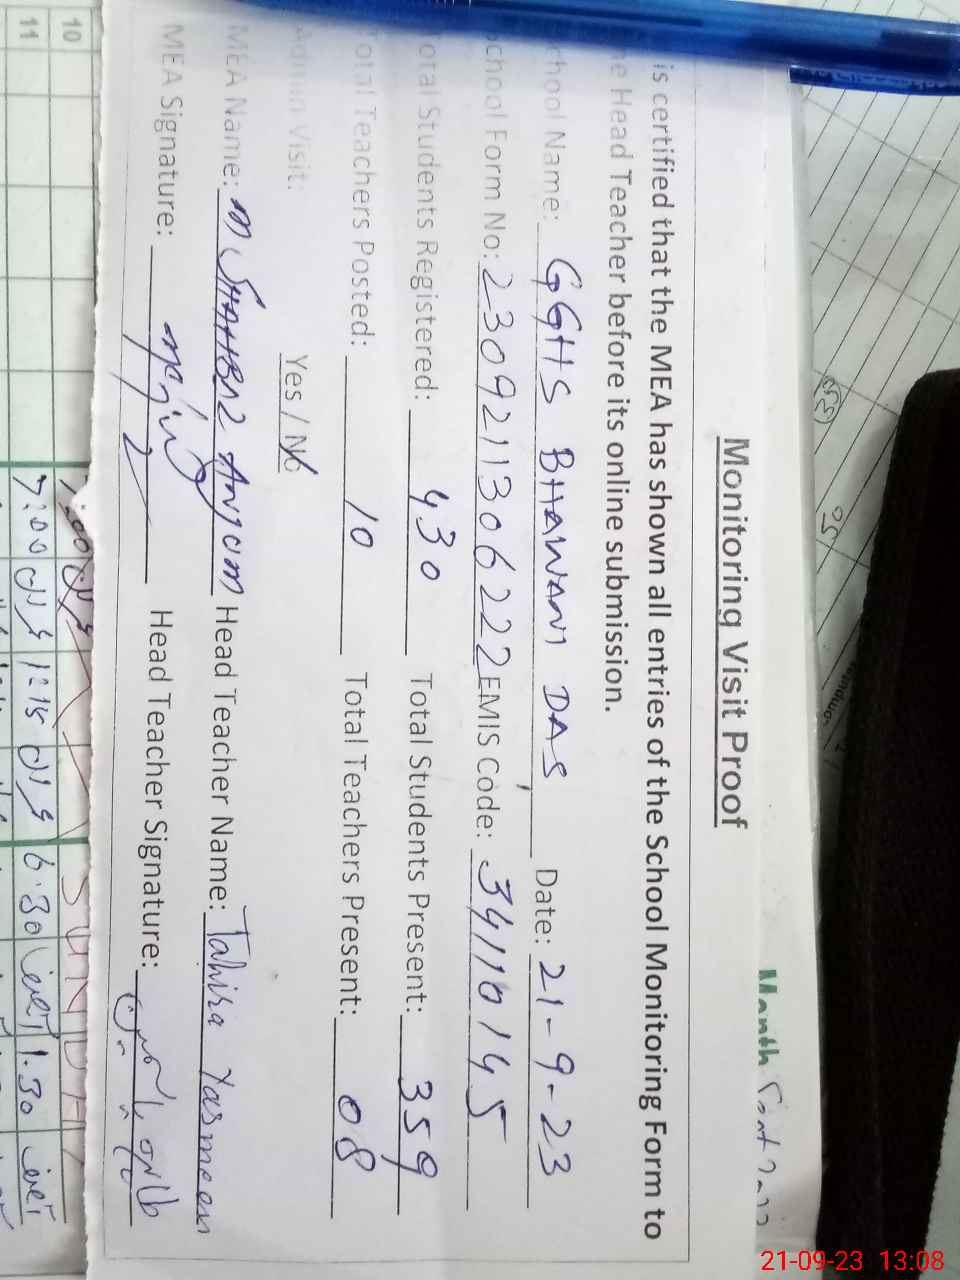 Monitoring Visit Proof
is certified that the MEA has shown all entries of the School Monitoring Form to
he Head Teacher before its online submission.
chool Name: GGHS BHAWANI DAS Date: 21-9-23
chool Form No: 2309211306222 EMIS Code: 34110145
otal Students Registered: 430 Total Students Present: 359
otal Teachers Posted: 10 Total Teachers Present: 08
Visit: Yes / No
MEA Name: M SHAHBAZ Anjum Head Teacher Name: Tahira Yasmeen
MEA Signature: Head Teacher Signature:
Month
10
SUNDAY
11 7:00 12:15 6:30 1:30
50
21-09-23 13:08